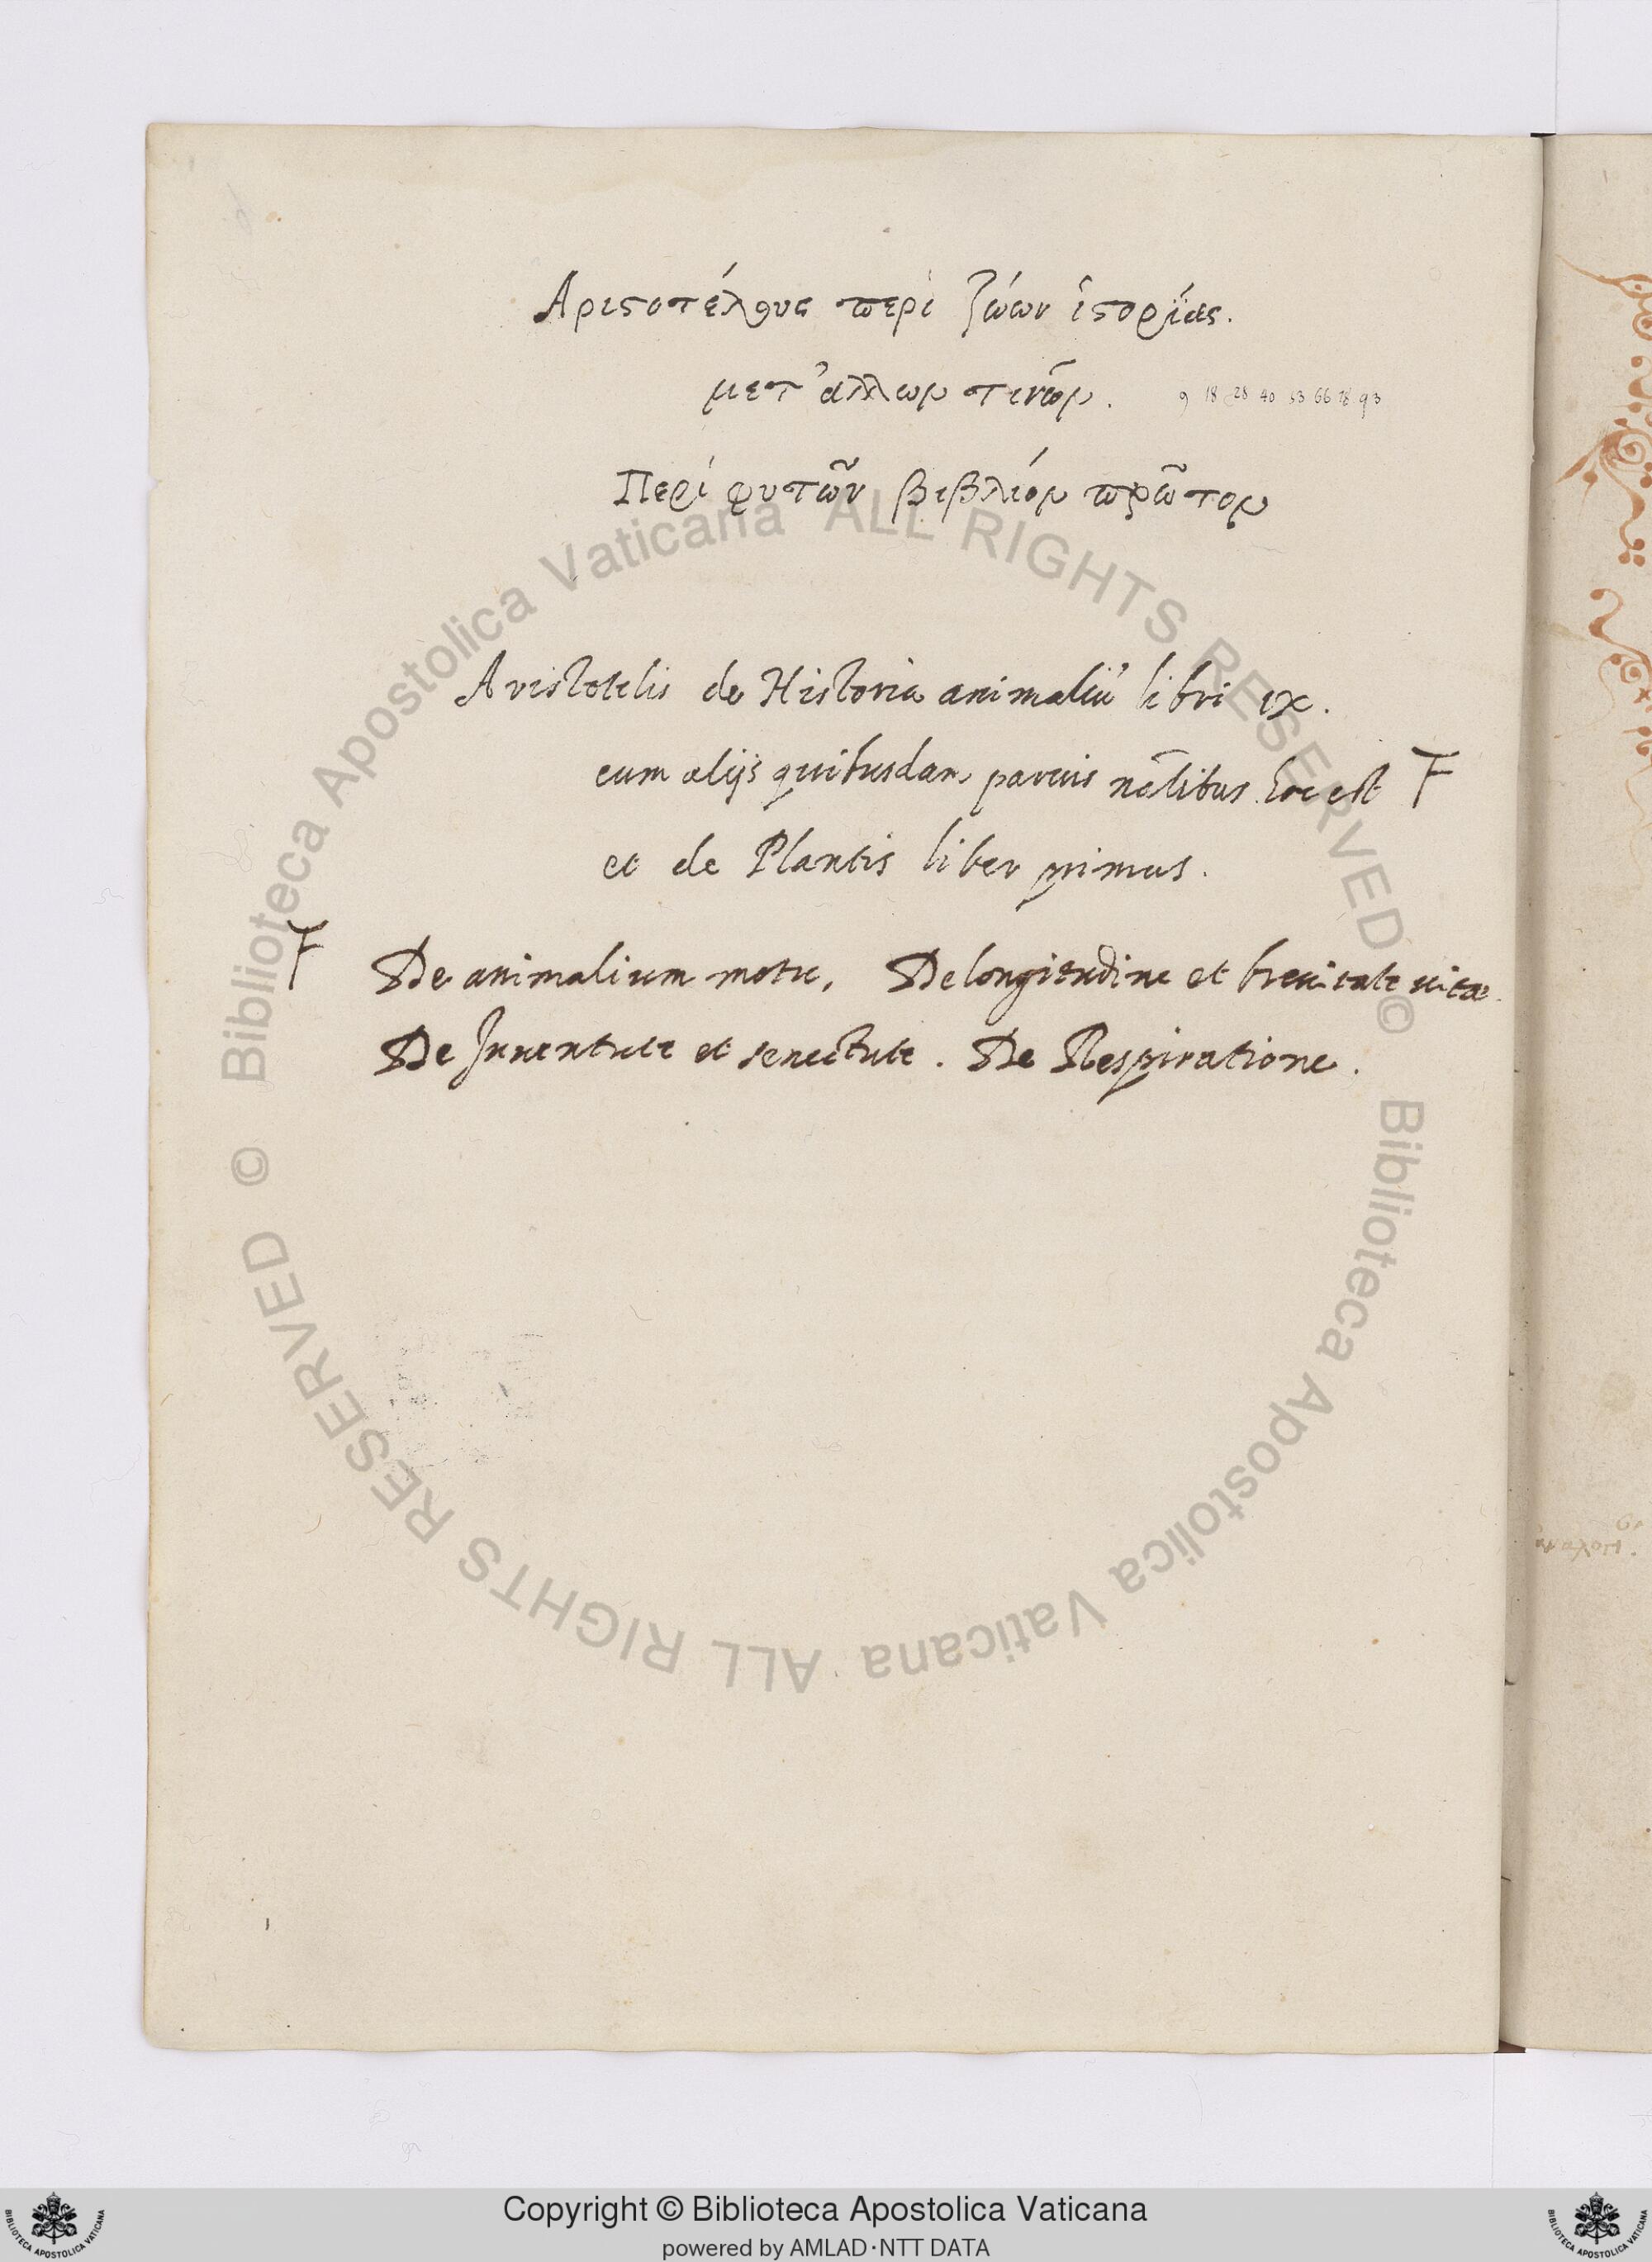 Αριστοτέλους περὶ ζώων ἱστορίας.
μετ' ἀλλων τινῶν. 9 18 28 40 53 66 78 93
Περὶ φυτῶν βιβλίον πρῶτον
Aristotelis de Historia animaliũ libri ix.
cum alijs quibusdam paruis nãlibus hoc est Ͳ
et de Plantis liber primus.
De animalium motu, De longitudine et breuitate uitæ.
De Juuentute et senectute. De Respiratione.
© Biblioteca Apostolica Vaticana ALL RIGHTS RESERVED
© Biblioteca Apostolica Vaticana ALL RIGHTS RESERVED
Copyright © Biblioteca Apostolica Vaticana
powered by AMLAD･NTT DATA
BIBLIOTECA APOSTOLICA VATICANA
BIBLIOTECA APOSTOLICA VATICANA